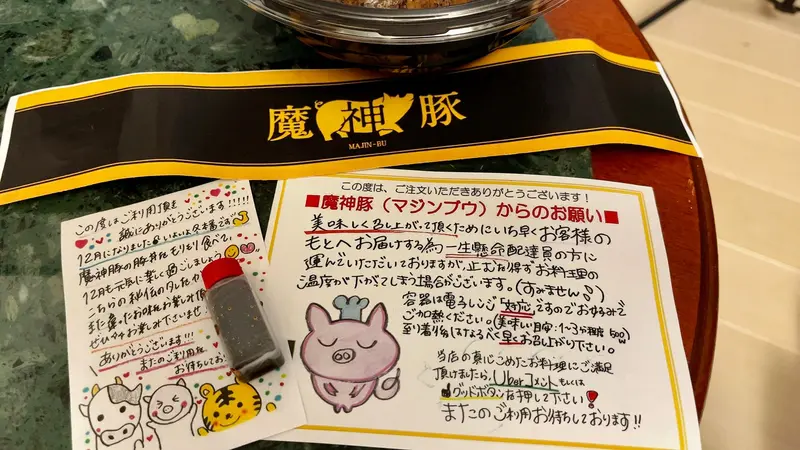 魔神豚
MAJIN-BU
この度はご利用頂き
誠にありがとうございます!!!!!
12月になりました いよいよ冬本番です
魔神豚の豚丼をもりもり食べて、
12月も元気に楽しく過ごしましょう
こちらの秘伝のタレを
また違ったお味をお楽しみ頂
ぜひマチお楽しみ下さいませ!
ありがとうございます!!!
またのご利用を
お待ちしてお
この度は、ご注文いただきありがとうございます!
■魔神豚(マジンブウ)からのお願い■
美味しく召し上がって頂くためにいち早くお客様の
もとへお届けする為一生懸命配達員の方に
運んでいただいておりますが、止むを得ずお料理の
温度が下がってしまう場合がございます。(すみません)
容器は電子レンジ"対応"ですのでお好みで
ご加熱ください。(美味しい目安:1~3分程度 500W)
到着後はなるべく早くお召し上がり下さい。
当店の真心こめたお料理にご満足
頂けましたら、Uberコメントもしくは
グッドボタンを押して下さい!
またのご利用お待ちしております!!